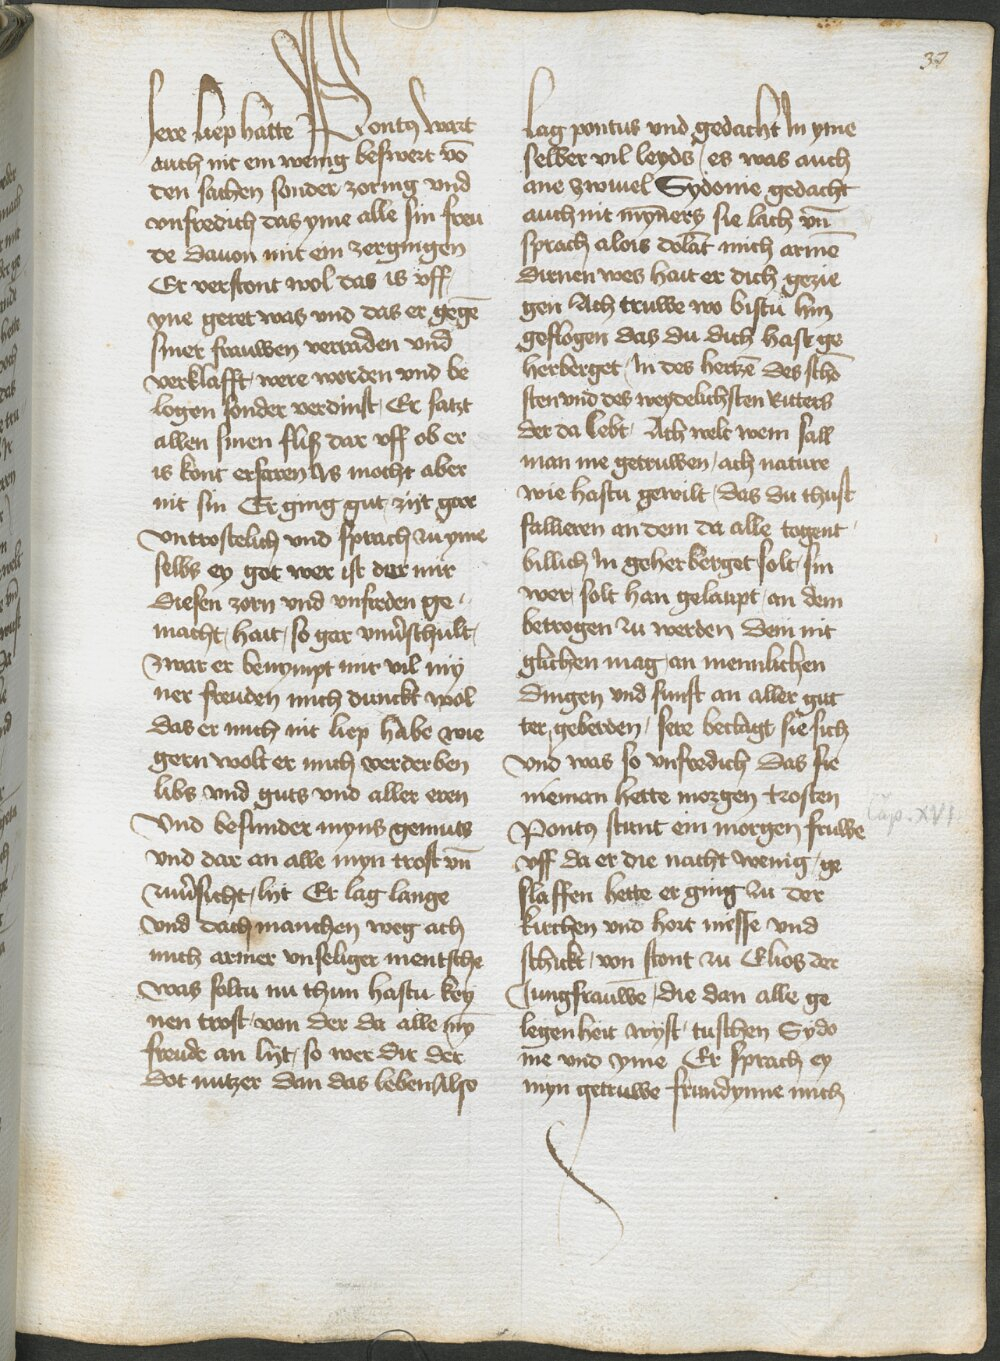 37
sere liep hatte Pontus wart
auch nit ein wenig beswert vō
den sachen sonder zornig vnd
vnfredich das yme alle sin freu
de dauon mit ein zergingen
Er verstont wol das is vff
yne geret was vnd das er gegē
siner frauwen verraden vnd
verklafft were worden vnd be
logen sonder verdinst Er satzt
allen sinen fliß dar vff ob er
is kont erfaren As mocht aber
nit sin Er ging gut zijt gar
vntrostelich vnd sprach zu yme
selbs ey got wer ist der mir
diesen zorn vnd vnfreden ge
macht hait so gar vnuerschult
zwar er benympt mir vil my
ner freuden mich dunckt wol
das er mich nit liep habe wie
gern wolt er mich verderben
libs vnd guts vnd aller eren
Vnd besunder myns gemuts
vnd dar an alle myn trost vn̄
zuuersicht lijt Er lag lange
vnd dach manchen weg ach
mich armer vnseliger mentsche
was soltu nu thun hastu key
nen trost von der da alle myn
freude an lijt so wer dir der
dot nutzer dan das leben Also
lag pontus vnd gedacht In yme
selber vil leyds es was auch
ane zwiuel Sydonie gedacht
auch nit mynners sie lach vn̄
sprach alois dolāt mich armē
dirnen wes hait er dich gezie
gen Ach truwe wo bistu hin
geflogen das du dich hast ge
herberget In des hertzē des schō
sten vnd des weydelichsten Ritters
der da lebt Ach welt wem sall
man me getruwen ach nature
wie hastu gewilt das du thust
fallieren an dem da alle togent
billich In geherberget solt sin
wer solt han gelaupt an dem
betrogen zu werden dem nit
glichen mag an mennlichen
dingen vnd sunst an aller gut
ter geberden sere beclagt sie sich
vnd was so vnfredich das sie
nieman hette mogen trosten
Pontus stunt ein morgen fruwe
vff da er die nacht wenig ge
slaffen hette er ging zu der
kirchen vnd hort messe vnd
schickt von stont zu Elios der
Jungfrauwe die dan alle ge
legenheit wyst tuschen Sydo
nie vnd yme Er sprach ey
myn getruwe frundynne mich
Cap. XVI.